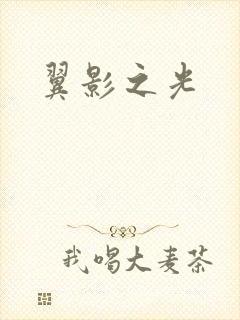 翼影之光
我喝大麦茶